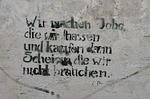 Wir machen Jobs,
die wir hassen
und kaufen dann
Scheisse die wir
nicht brauchen.